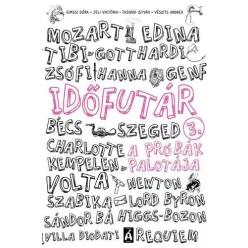 GIMESI DÓRA – JELI VIKTÓRIA – TASNÁDI ISTVÁN – VÉSZITS ANDREA
MOZART EDINA
TIBI GOTTHARD
ZSÓFI HANNA GENF
IDŐFUTÁR
BÉCS SZEGED 3.
CHARLOTTE A PRÓBÁK
KEMPELEN PALOTÁJA
VOLTA NEWTON
SZABIKA LORD BYRON
SÁNDOR BÁ HIGGS-BOZON
VILLA DIODATI REQUIEM